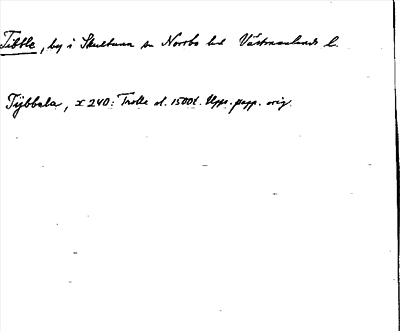 Tibble, by i Skultuna sn Norrbo hd Västmanlands l.
Tÿbbala, x 240: Trolle sl. 1500t. Upps. papp. orig.